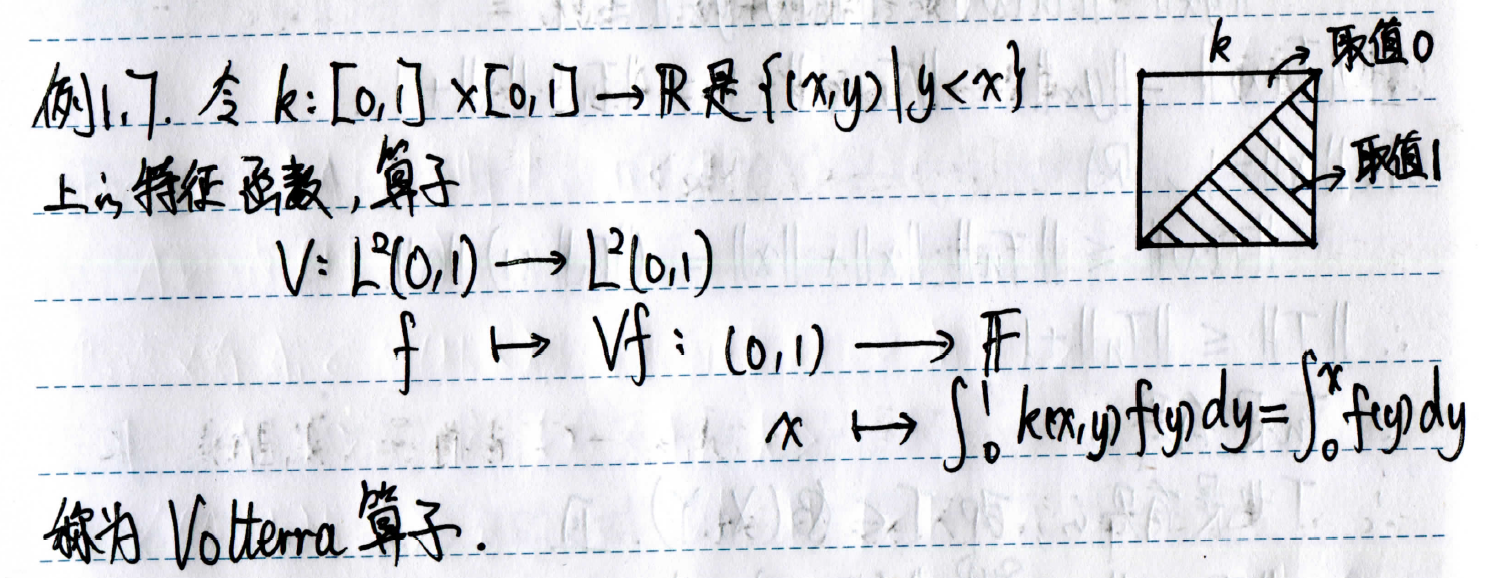 例1.7. 令 k: [0,1] × [0,1] → ℝ 是 {(x,y) | y < x}
上的特征函数, 算子
V: L²(0,1) ⟶ L²(0,1)
f ↦ Vf : (0,1) ⟶ 𝔽
x ↦ ∫₀¹ k(x,y) f(y) dy = ∫₀ˣ f(y) dy
称为 Volterra 算子.
k
取值0
取值1